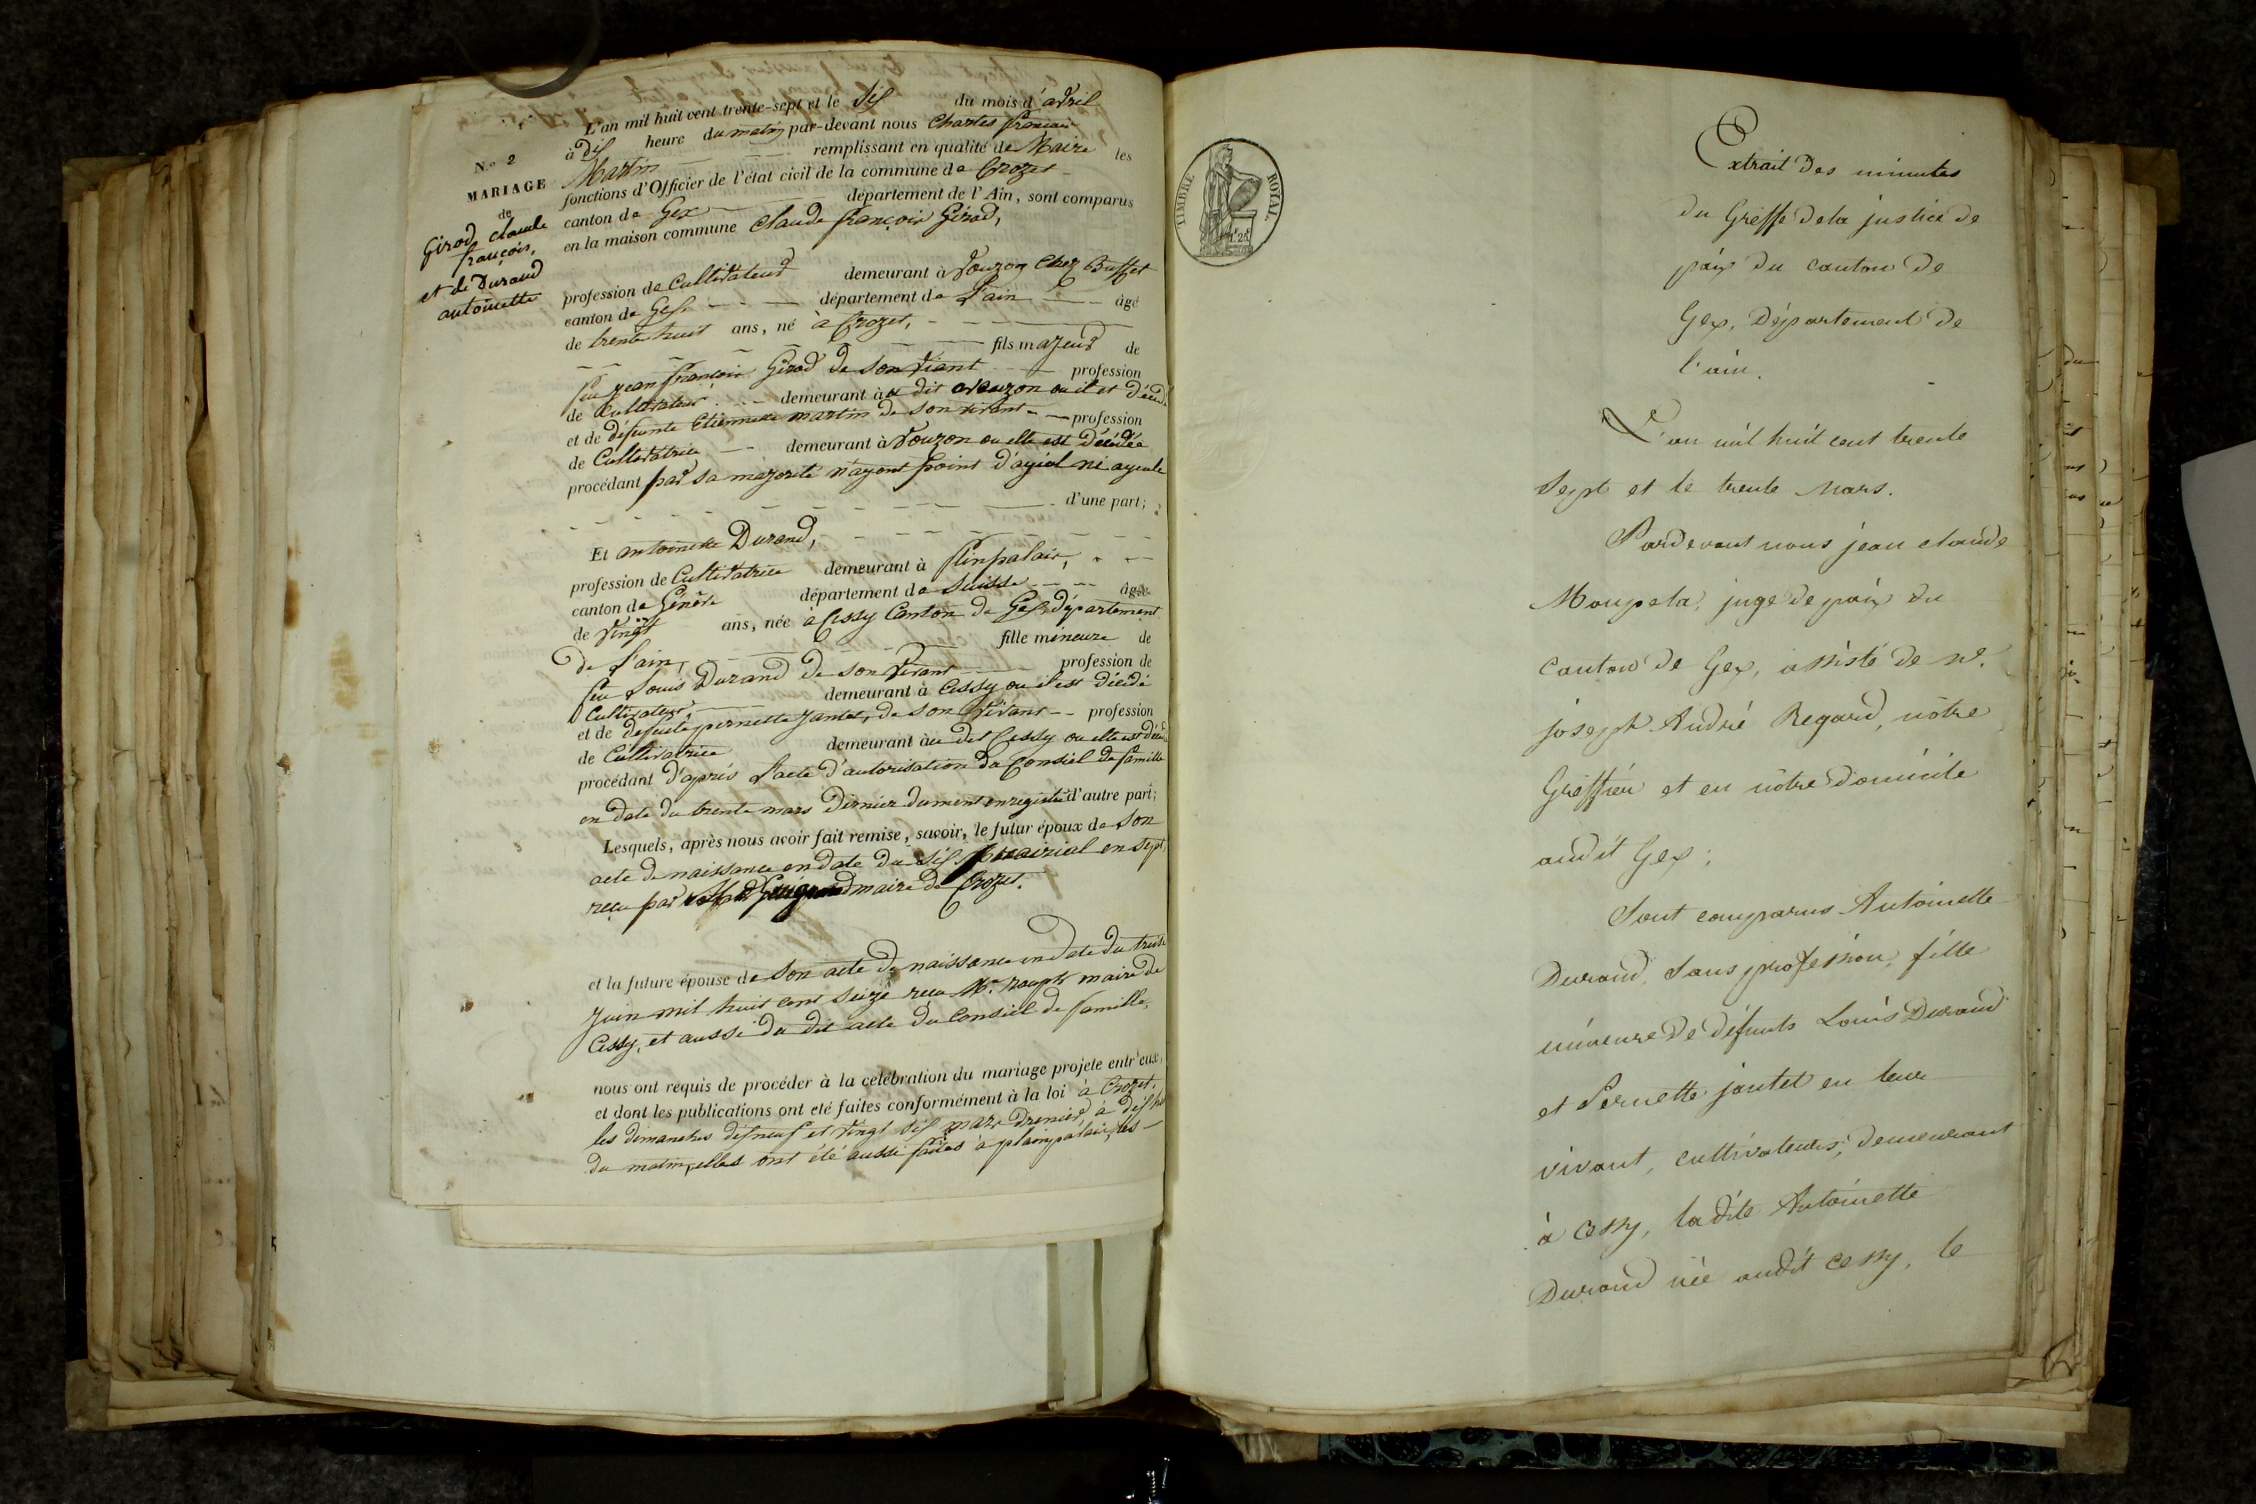 N.o 2
MARIAGE
de
Girod claude
françois,
et de Durand
antoinette
L'an mil huit cent trente-sept et le dix du mois d'avril
à dix heure du matin par-devant nous Charles françois
Martin remplissant en qualité de Maire les
fonctions d'Officier de l'état civil de la commune de Crozet
canton de Gex département de l'Ain, sont comparus
en la maison commune Claude françois Girod,
profession de Cultivateur demeurant à Vouzon Chez Buffet
canton de Gex département de l'ain âgé
de trente huit ans, né à Crozet,
fils majeur de
feu jean françois Girod de son vivant profession
de Cultivateur demeurant à dit Vouzon ou il et décédé
et de défunte Etiennette martin de son vivant profession
de Cultivatrice demeurant à Vouzon ou elle est décédée
procédant par sa majorité n'ayant point d'ayiol ni ayeule
d'une part;
Et antoinette Durand,
profession de Cultivatrice demeurant à Plinpalais,
canton de Genève département de Suisse âgée
de vingt ans, née à Cessy Canton de Gex département
de l'ain, fille mineure de
feu Louis Durand de son vivant profession de
Cultivateur, demeurant à Cessy ou il est décédé
et de defunte pernette jantet, de son vivant profession
de Cultivatrice demeurant àu dit Cessy ou elle est décédée
procédant d'après l'acte d'autorisation du Consiel de famille
en date du trente mars dernier dument enregistré d'autre part;
Lesquels, après nous avoir fait remise, savoir, le futur époux de son
acte de naissance en date du dix prairial en sept,
reçu par maire de Crozet.
et la future épouse de son acte de naissance en date du treize
juin mil huit cent seize reçu Mr. roupt maire de
Cessy, et aussi du dit acte du Consiel de famille,
nous ont requis de procéder à la celébration du mariage projete entr'eux,
et dont les publications ont eté faites conformément à la loi à Crozet,
les dimanches dixneuf et vingt six mars dernier à dix hre
du matin, elles ont été aussi faites à plainpalais, les
TIMBRE ROYAL.
Extrait des minutes
du Greffe de la justice de
paix du canton de
Gex, Département de
l'ain.
L'an mil huit cent trente
Sept et le trente Mars.
Pardevant nous jean claude
juge de paix du
canton de Gex, assisté de Me.
joseph André Regard, nôtre
Greffier et en nôtre domicile
audit Gex;
Sont comparus Antoinette
Durand, Sans profession, fille
mineure de défunts Louis Durand
et Pernette jantet en leur
vivant, cultivateurs, demeurant
à Cessy, ladite Antoinette
Durand née audit Cessy, le